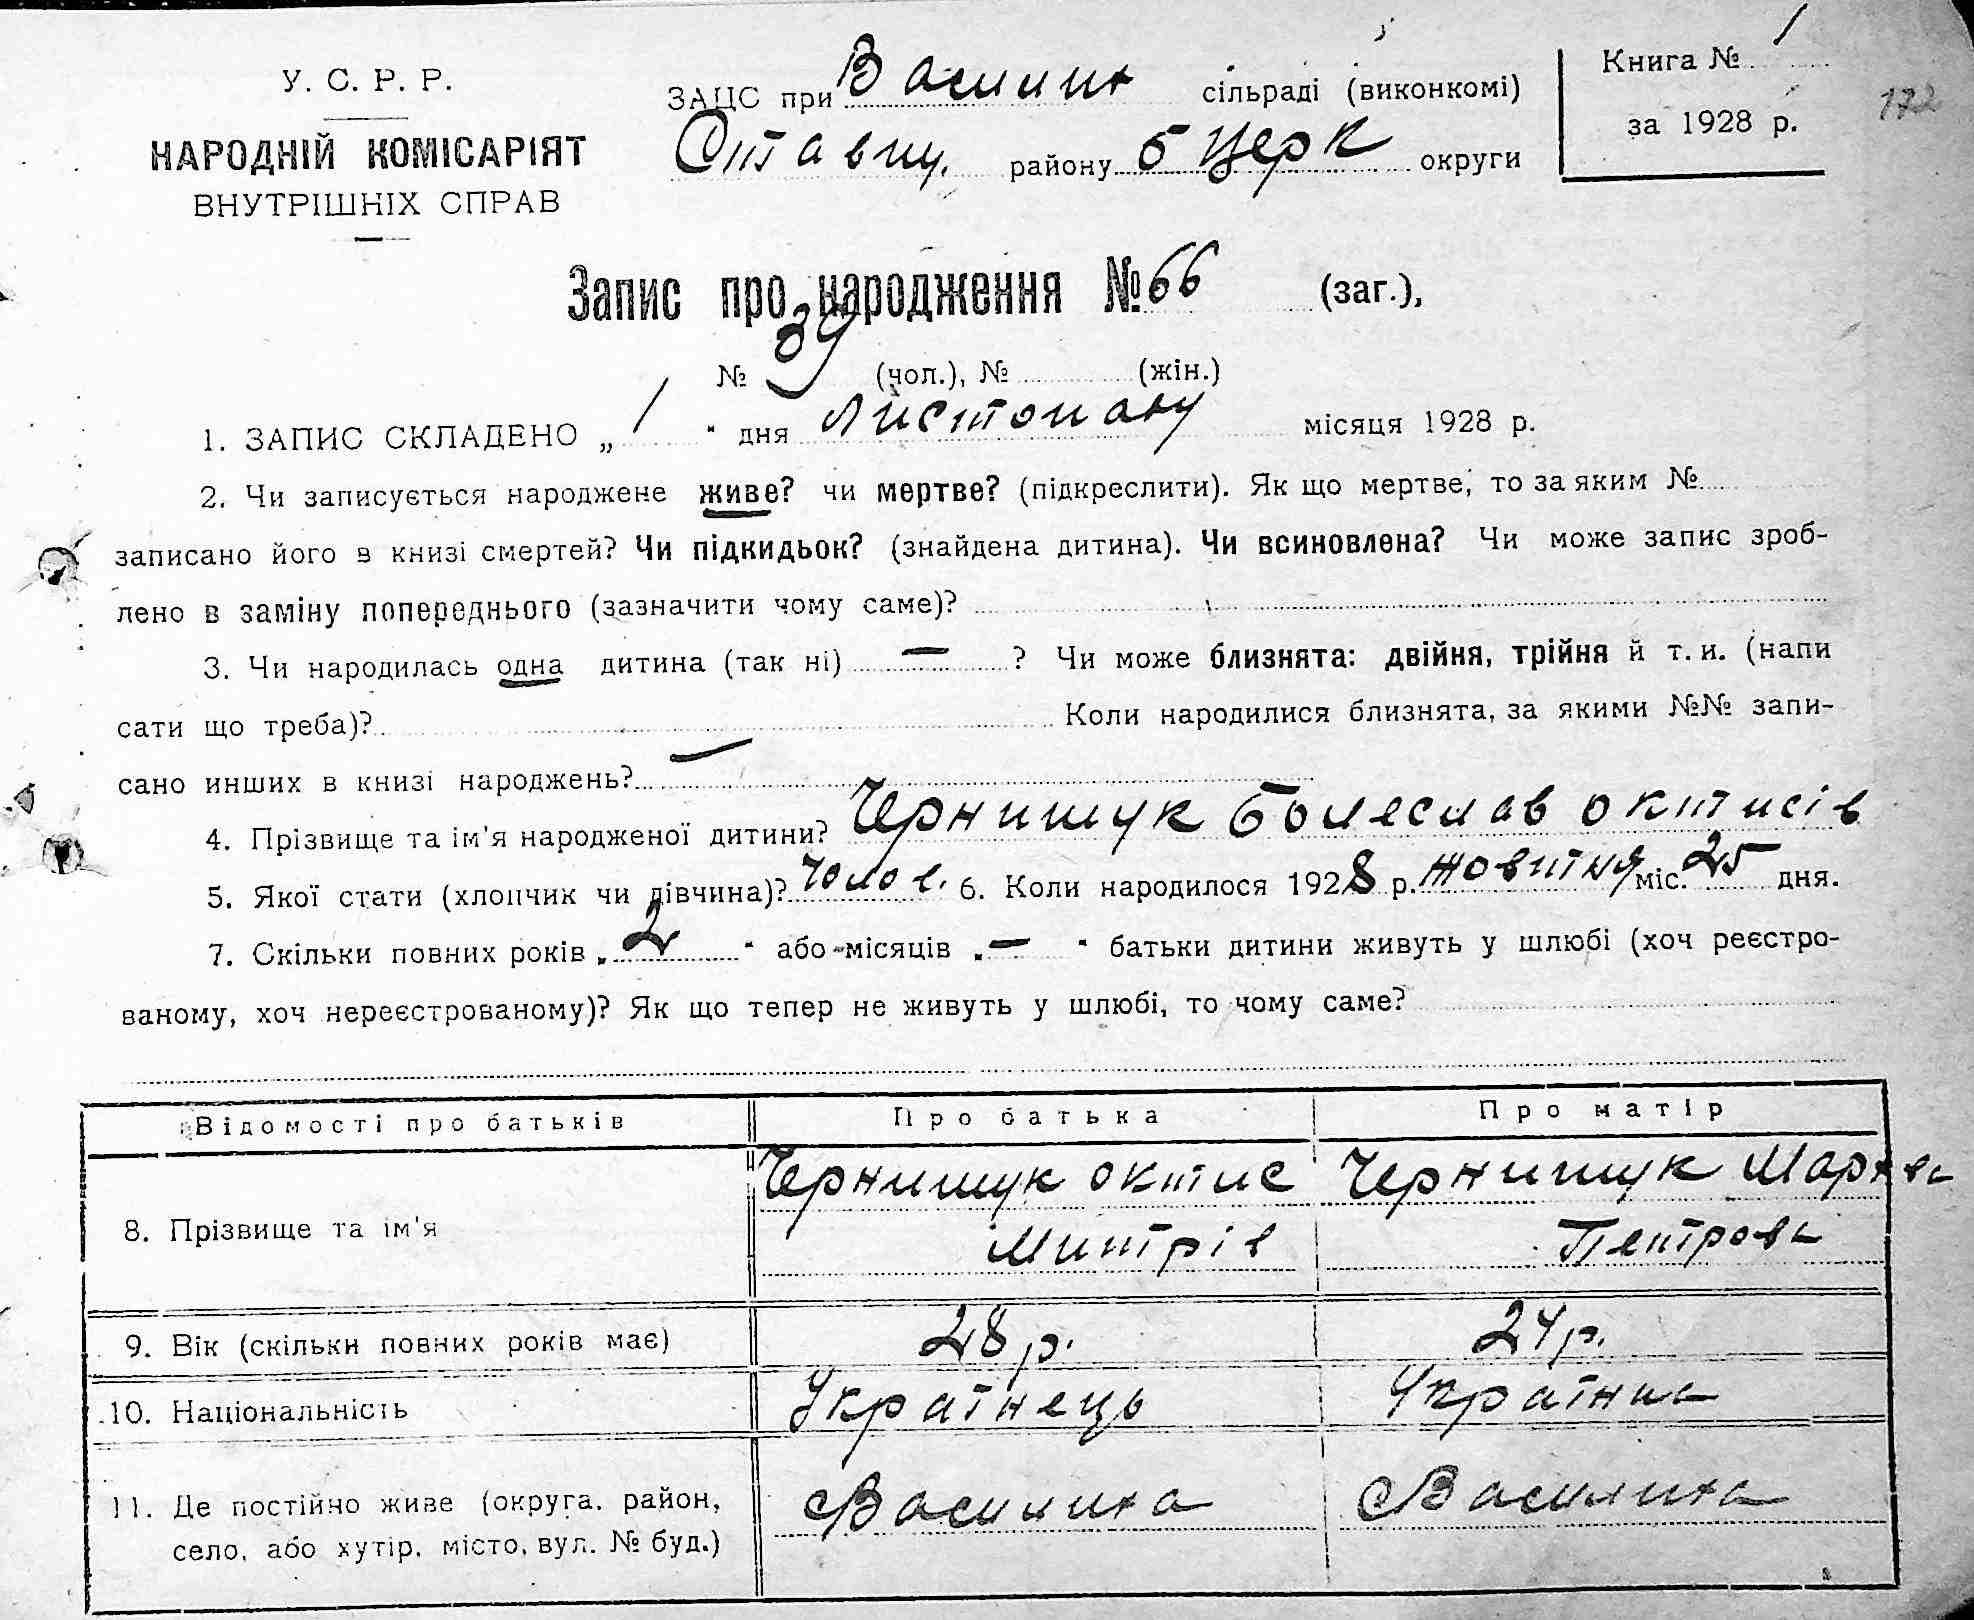 У. С. Р. Р.
НАРОДНІЙ КОМІСАРІЯТ
ВНУТРІШНІХ СПРАВ
ЗАЦС при Василих сільраді (виконкомі)
Ставищ. району Б Церк округи
Книга № 1
за 1928 р.
172
Запис про народження № 66 (заг.),
№ 39 (чол.), № (жін.)
1. ЗАПИС СКЛАДЕНО „ 1 " дня Листопаду місяця 1928 р.
2. Чи записується народжене живе? чи мертве? (підкреслити). Як що мертве, то за яким №
записано його в книзі смертей? Чи підкидьок? (знайдена дитина). Чи всиновлена? Чи може запис зроб-
лено в заміну попереднього (зазначити чому саме)?
3. Чи народилась одна дитина (так ні) — ? Чи може близнята: двійня, трійня й т. и. (напи
сати що треба)? Коли народилися близнята, за якими №№ запи-
сано инших в книзі народжень? —
4. Прізвище та ім'я народженої дитини? Чернишук Болеслав октисів
5. Якої стати (хлопчик чи дівчина)? Чолов. 6. Коли народилося 1928 р. жовтня міс. 25 дня.
7. Скільки повних років „ 2 " або місяців „ — " батьки дитини живуть у шлюбі (хоч реєстро-
ваному, хоч нереєстрованому)? Як що тепер не живуть у шлюбі, то чому саме?
Відомості про батьків Про батька Про матір
8. Прізвище та ім'я Чернишук октис Чернишук
Митрів Петрова
9. Вік (скільки повних років має) 28 р. 24 р.
10. Національність Українець Українка
11. Де постійно живе (округа, район,
село, або хутір, місто, вул. № буд.) Василиха Василиха